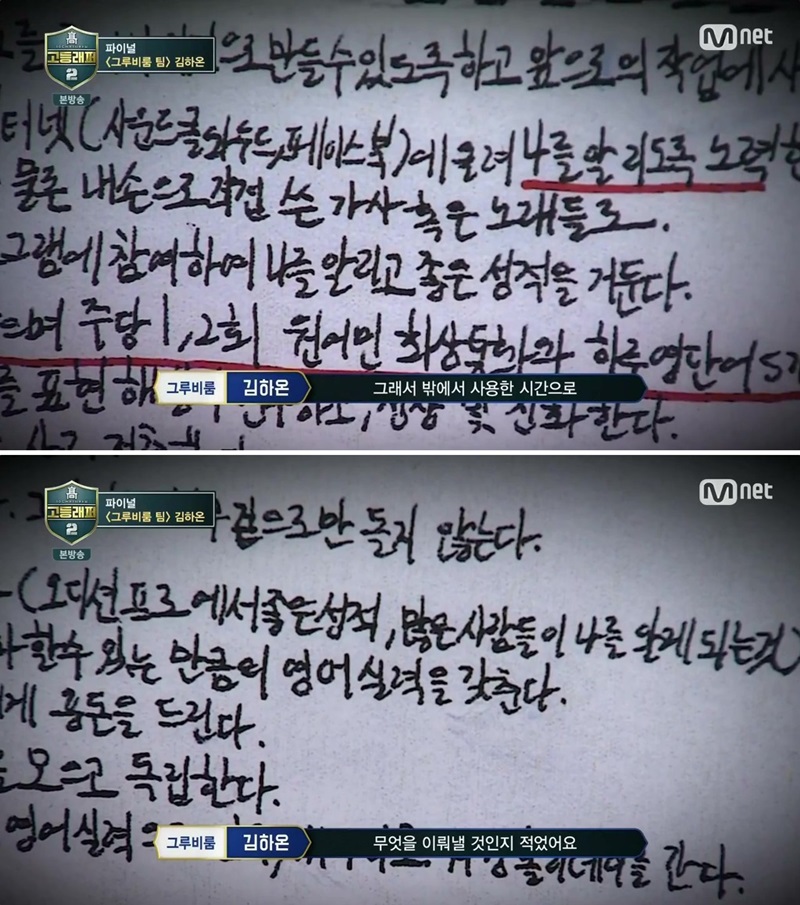 高
고등래퍼
2
본방송
파이널
〈그루비룸 팀〉 김하온
Mnet
으로 만들수 있도록 하고 앞으로의 작업에
터넷(사운드클라우드, 페이스북)에 올려 나를 알리도록 노력
물론 내손으로 직접 쓴 가사 혹은 노래들로.
그램에 참여하며 나를 알리고 좋은 성적을 거둔다.
주당 1, 2회 원어민 화상통화와 하루 영단어 5
를 표현해
그루비룸 김하온 그래서 밖에서 사용한 시간으로
한다.
高
고등래퍼
2
본방송
파이널
〈그루비룸 팀〉 김하온
Mnet
겉으로만 돌지 않는다.
(오디션 프로에서 좋은성적, 많은사람들이 나를 알게 되는것)
할수 있는 만큼의 영어실력을 갖춘다.
게 용돈을 드린다.
모으고 독립한다.
영어실력
그루비룸 김하온 무엇을 이뤄낼 것인지 적었어요
를 간다.